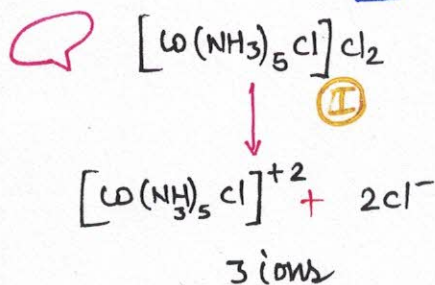 [Co(NH3)5Cl]Cl2
I
[Co(NH3)5Cl]+2 + 2Cl-
3 ions